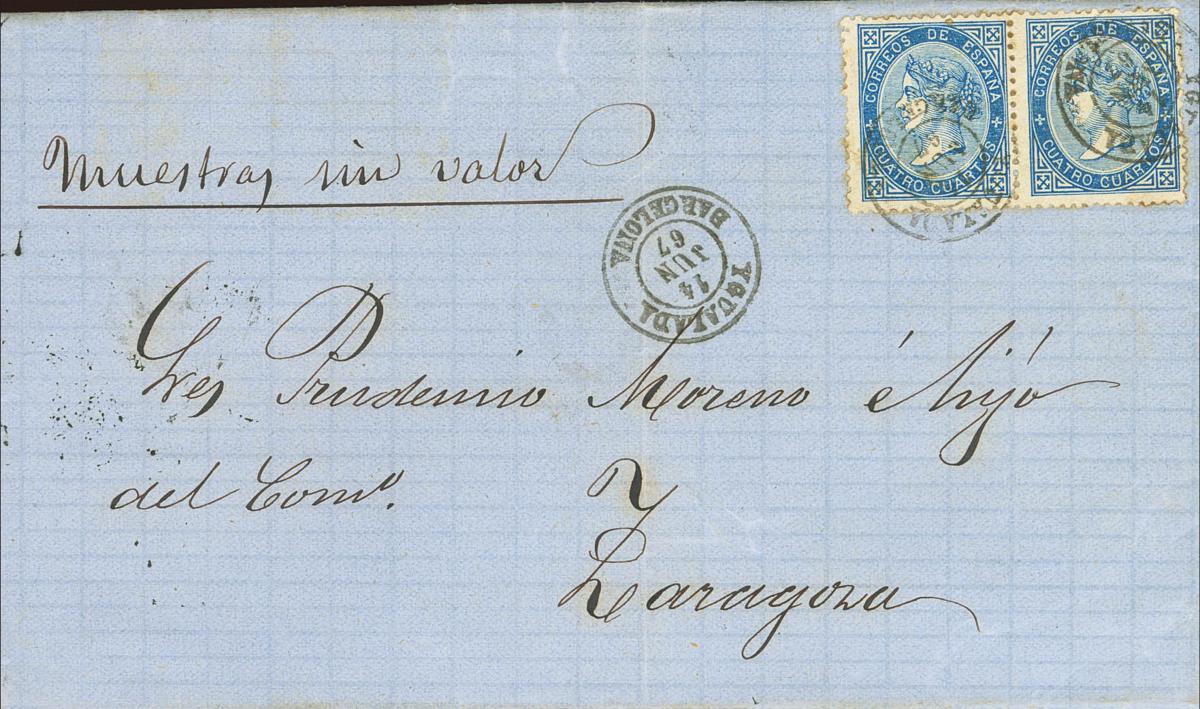 CORREOS DE ESPAÑA
CUATRO CUARTOS
CORREOS DE ESPAÑA
CUATRO CUARTOS
Muestras sin valor
YGUALADA
14
JUN
67
BARCELONA
Sres Prudencio Moreno é hijo
del Comº.
Zaragoza